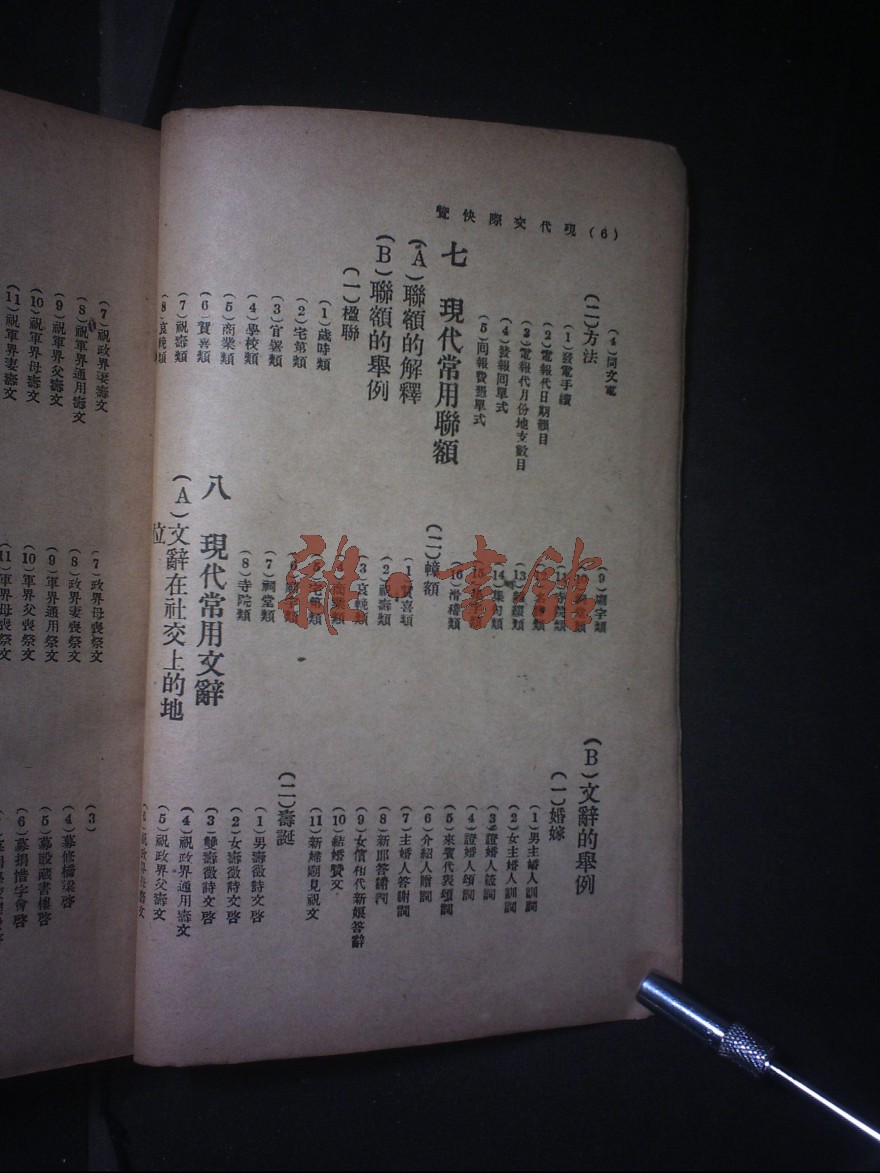 (6)現代交際快覽
(4)同文電
(二)方法
(1)發電手續
(2)電報代日期韻目
(3)電報代月份地支數目
(4)發報回單式
(5)回報費憑單式
七 現代常用聯額
(A)聯額的解釋
(B)聯額的舉例
(一)楹聯
(1)歲時類
(2)宅第類
(3)官署類
(4)學校類
(5)商業類
(6)賀喜類
(7)祝壽類
(8)哀輓類
(14)集句類
(16)滑稽類
(二)幛額
(1)賀喜類
(2)祝壽類
(3)哀輓類
(5)宅第類
(7)祠堂類
(8)寺院類
八 現代常用文辭
(A)文辭在社交上的地
位
(B)文辭的舉例
(一)婚嫁
(1)男主婚人訓詞
(2)女主婚人訓詞
(3)證婚人箴詞
(4)證婚人頌詞
(5)來賓代表頌詞
(6)介紹人贈詞
(7)主婚人答謝詞
(8)新郎答謝詞
(9)女儐相代新孃答辭
(10)結婚贊文
(11)新婦廟見祝文
(二)壽誕
(1)男壽徵詩文啓
(2)女壽徵詩文啓
(3)雙壽徵詩文啓
(4)祝政界通用壽文
(5)祝政界父壽文
(7)祝政界妻壽文
(8)祝軍界通用壽文
(9)祝軍界父壽文
(10)祝軍界母壽文
(11)祝軍界妻壽文
(7)政界母喪祭文
(8)政界妻喪祭文
(9)軍界通用祭文
(10)軍界父喪祭文
(11)軍界母喪祭文
(3)
(4)募修橋梁啓
(5)募設藏書樓啓
(6)募捐惜字會啓
雜·書館